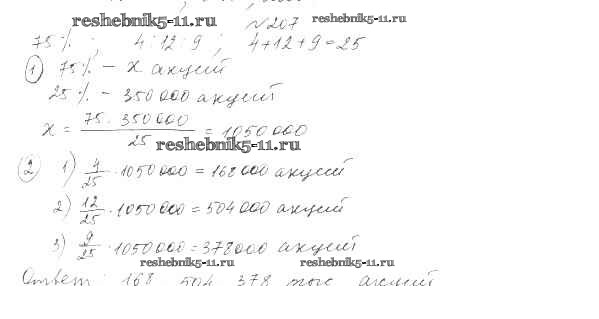 reshebnik5-11.ru №207 reshebnik5-11.ru
75% ; 4:12:9 ; 4+12+9=25
① 75% – x акций
25% – 350000 акций
x = 75·350000 / 25 = 1050000
reshebnik5-11.ru
② 1) 4/25 · 1050000 = 168000 акций
2) 12/25 · 1050000 = 504000 акций
3) 9/25 · 1050000 = 378000 акций
reshebnik5-11.ru reshebnik5-11.ru
Ответ: 168 504 378 тыс акций